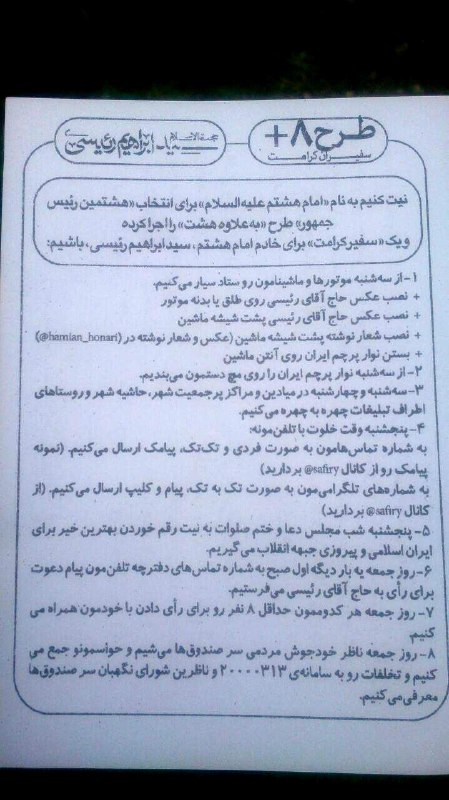 طرح ۸+
سفیران کرامت
حجت الاسلام سید ابراهیم رئیسی
نیت کنیم به نام «امام هشتم علیه السلام» برای انتخاب «هشتمین رئیس
جمهور» طرح «به علاوه هشت» را اجرا کرده
و یک «سفیر کرامت» برای خادم امام هشتم، سید ابراهیم رئیسی، باشیم:
۱- از سه‌شنبه موتورها و ماشینامون رو ستاد سیار می‌کنیم.
+ نصب عکس حاج آقای رئیسی روی طلق یا بدنه موتور
+ نصب عکس حاج آقای رئیسی پشت شیشه ماشین
+ نصب شعار نوشته پشت شیشه ماشین (عکس و شعار نوشته در @hamian_honari)
+ بستن نوار پرچم ایران روی آنتن ماشین
۲- از سه‌شنبه نوار پرچم ایران را روی مچ دستمون می‌بندیم.
۳- سه‌شنبه و چهارشنبه در میادین و مراکز پرجمعیت شهر، حاشیه شهر و روستاهای
اطراف تبلیغات چهره به چهره می‌کنیم.
۴- پنجشنبه وقت خلوت با تلفن‌مونه:
به شماره تماس‌هامون به صورت فردی و تک‌تک، پیامک ارسال می‌کنیم. (نمونه
پیامک رو از کانال @safiry بردارید)
به شماره‌های تلگرامی‌مون به صورت تک به تک، پیام و کلیپ ارسال می‌کنیم. (از
کانال @safiry بردارید)
۵- پنجشنبه شب مجلس دعا و ختم صلوات به نیت رقم خوردن بهترین خیر برای
ایران اسلامی و پیروزی جبهه انقلاب می‌گیریم.
۶- روز جمعه یه بار دیگه اول صبح به شماره تماس‌های دفترچه تلفن‌مون پیام دعوت
برای رأی به حاج آقای رئیسی می‌فرستیم.
۷- روز جمعه هر کدوممون حداقل ۸ نفر رو برای رأی دادن با خودمون همراه می
کنیم.
۸- روز جمعه ناظر خودجوش مردمی سر صندوق‌ها می‌شیم و حواسمونو جمع می
کنیم و تخلفات رو به سامانه‌ی ۲۰۰۰۰۳۱۳ و ناظرین شورای نگهبان سر صندوق‌ها
معرفی می‌کنیم.